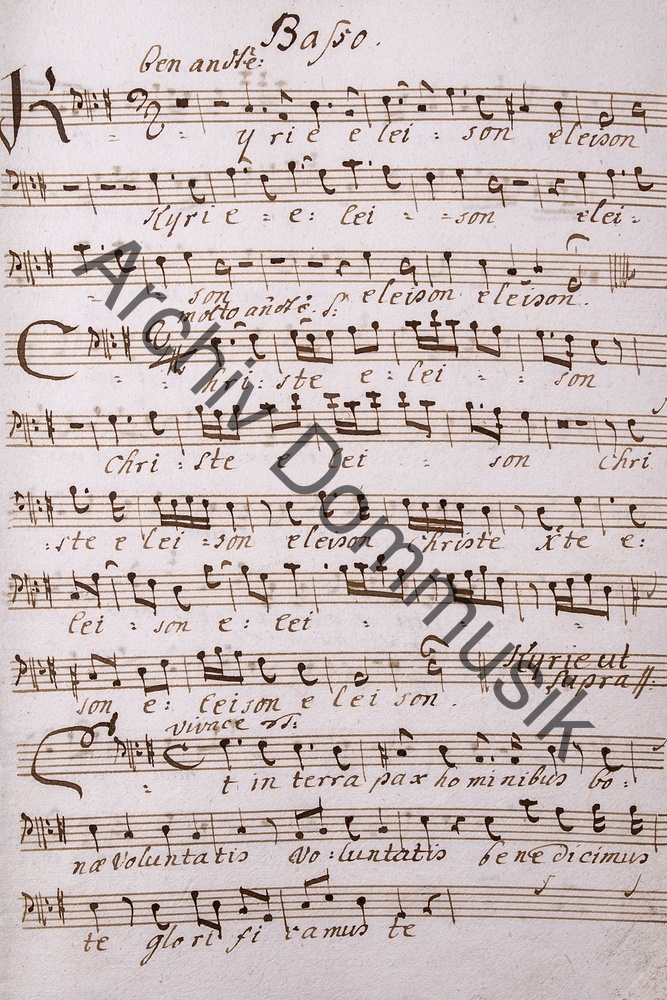 Basso.
ben andte:
Kyrie elei = son eleison
Kyri e = e: lei = = son elei =
= son eleison eleison.
molto andte. S:
Chri = ste e = lei = = son
Chri = ste e lei = son Chri
= ste e lei = son eleison Christe Xste e:
lei = son e = lei = = = =
son e = leison e lei son.
Kyrie ut
supra
vivace
Et in terra pax hominibus bo =
næ voluntatis vo = luntatis benedicimus
te glori fi camus te
Archiv Dommusik